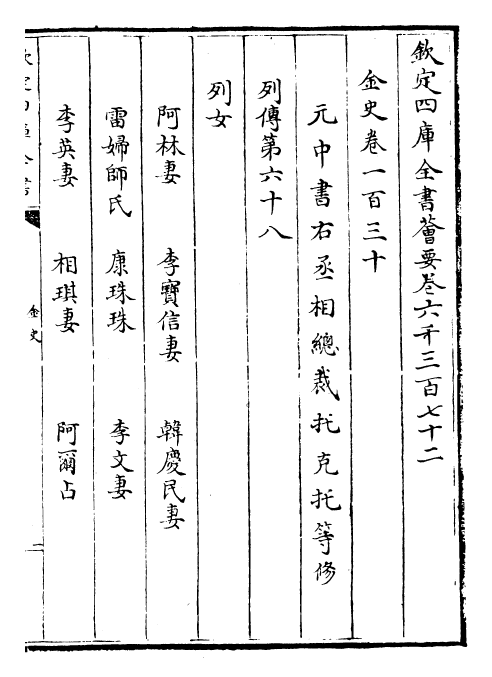 欽定四庫全書薈要卷六千三百七十二
金史卷一百三十
元中書右丞相總裁托克托等修
列傳第六十八
列女
阿林妻 李寶信妻 韓慶民妻
雷婦師氏 康珠珠 李文妻
李英妻 相琪妻 阿爾占
金史